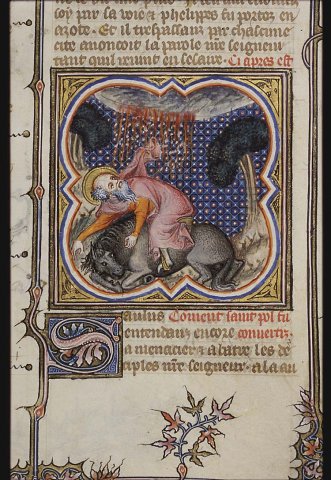 soy par sa voie & phelippes fu portez en
azote. Et il trespassant par chascune
cite anoncoit la parole nre seigneur
tant quil reuint en cesaire. Ci apres est
Saulus Coment saint pol fu
entendanz encore conuertiz.
a menacier & a batre les de
ciples nre seigneur. ala au